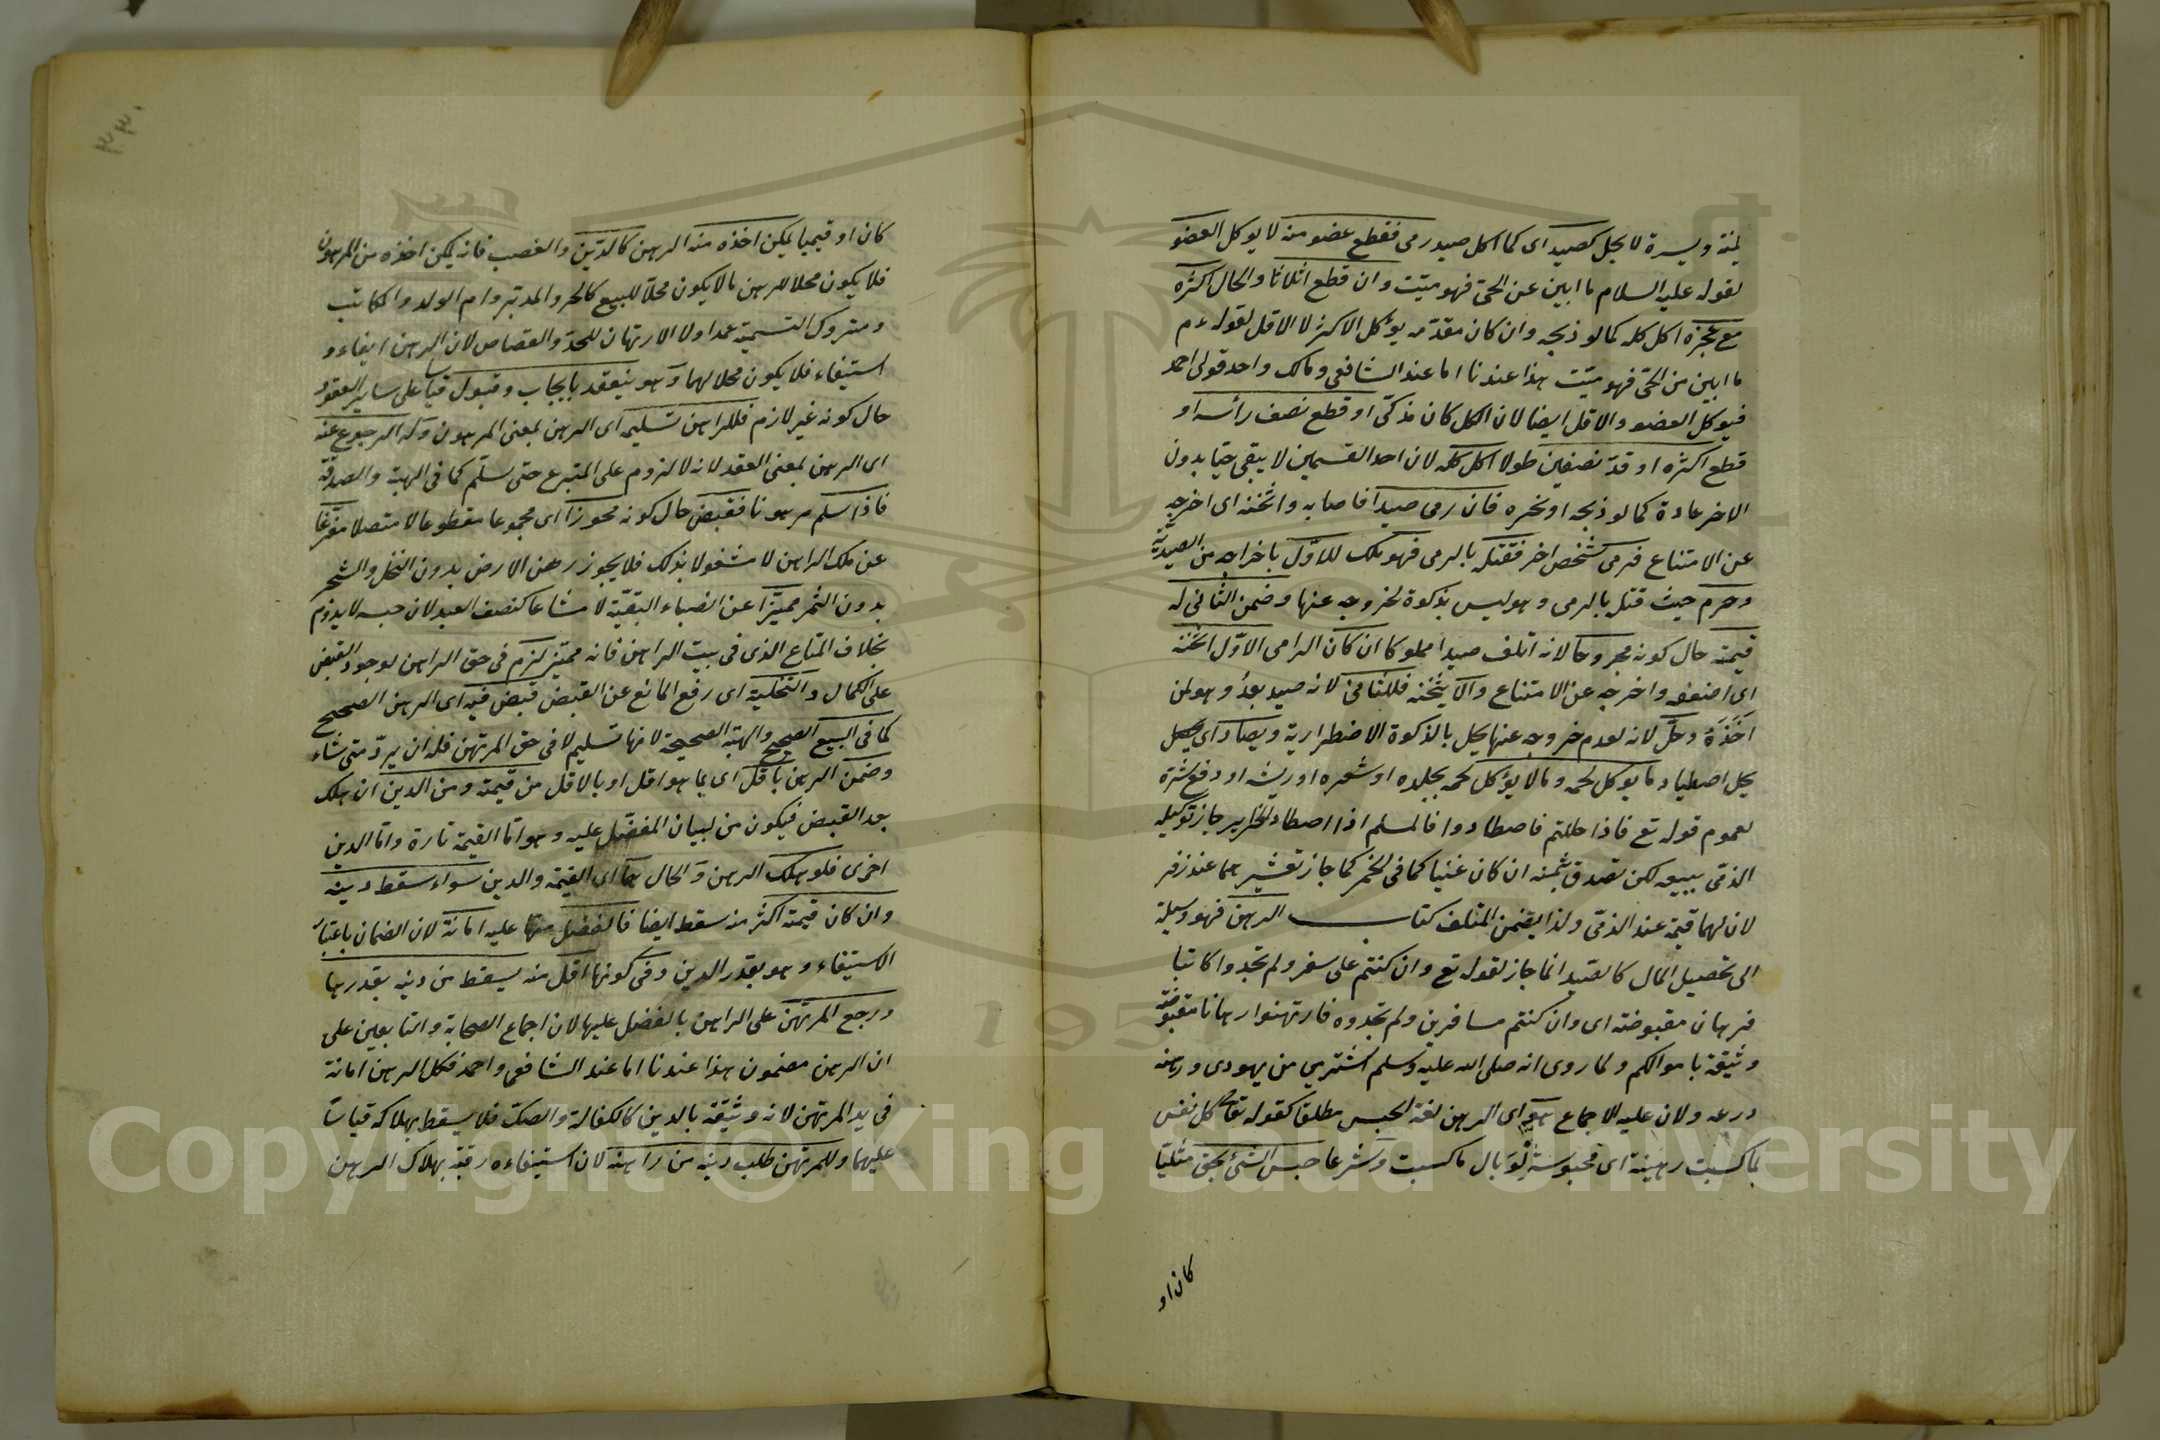 يمنة ويسرة لا يحل كصيد اى كما اكل صيد رمى فقطع عضو منه لا يوكل العضو
لقوله عليه السلام ما ابين عن الحى فهو ميّت وان قطع اثلاثا والحال اكثره
مع عجزه اكل كله كما لو ذبحه وان كان مقدّمه يؤكل الاكثر لا الاقل لقوله عم
ما ابين من الحىّ فهو ميّت هذا عندنا اما عند الشافعى ومالك واحد قولى احمد
فيوكل العضو والاقل ايضا لان الكل كان مذكّى او قطع نصف رأسه او
قطع اكثره او قدّ نصفين طولا اكل كله لان احد القسمين لا يبقى حيّا بدون
الاخر عادة كما لو ذبحه او نحره فان رمى صيدا فاصابه واثخنه اى اخرجه
عن الامتناع فرمى شخص اخر فقتله بالرمى فهو ملك للاوّل باخراجه من الصيديّة
وحرم حيث قتل بالرمى وهو ليس بذكوة لخروجه عنها وضمن الثانى له
قيمته حال كونه مجروحا لانه اتلف صيدا مملوكا ان كان الرامى الاوّل اثخنه
اى اضعفه واخرجه عن الامتناع والا يثخنه فللثانى لانه صيد بعدُ وهو لمن
اخَذَهُ وحَلّ لانه لعدم خروجه عنها يحل بالذكوة الاضطرارية ويصاد اى يحل
يحل اصطياد ما يوكل لحمه وما لا يؤكل لحمه بجلده او شعره او ريشه او دفع شره
لعموم قوله تع فاذا حللتم فاصطادوا فالمسلم اذا اصطاد الخنزير جاز توكيله
الذمّى ببيعه لكن تصدق بثمنه ان كان غنيا كما فى الخمر كما جاز تعشيرهما عند زفر
لان لهما قيمة عند الذمّى ولذا يضمن المتلف كتاب الرهن فهو وسيلة
الى تحصيل المال كالصيد انما جاز لقوله تع وان كنتم على سفر ولم تجدوا كاتبا
فرهان مقبوضة اى وان كنتم مسافرين ولم تجدوه فارتهنوا رهانا مقبوضة
وثيقة باموالكم ولما روى انه صلى الله عليه وسلم اشترى من يهودى ورهنه
درعه ولان عليه الاجماع هو اى الرهن لغة الحبس مطلقا كقوله تعالى كل نفس
بما كسبت رهينة اى محبوسة لِوَبال ما كسبت وشرعا حبس الشئ بحق مثليّا
كان او
كان او قيميا يمكن اخذه منه الرهن كالدّين والغصب فانه يمكن اخذه من المرهون
فلا يكون محلّا للرهن ما لا يكون محلّا للبيع كالحر والمدبّر وام الولد والمكاتب
ومتروك التسمية عمدا ولا الارتهان للحدّ والقصاص لان الرهن ايفاء و
استيفاء فلا يكون محلا لهما وهو ينعقد بايجاب وقبول قياسا على ساير العقود
حال كونه غير لازم فللراهن تسليمه اى الرهن بمعنى المرهون وله الرجوع عنه
اى الرهن بمعنى العقد لانه لا لزوم على المتبرع حتى سلّم كما فى الهبة والصدقة
فاذا سلم مرهونا فقبض حال كونه محوزا اى مجموعا مقطوعا لا متصلا مفرّغا
عن ملك الراهن لا مشغولا بذلك فلا يجوز رهن الارض بدون النخل والشجر
بدون الثمر مميّزا عن انصباء البقيّة لا مشاعا كنصف العبد لان حبسه لا يدوم
بخلاف المتاع الذى فى بيت الراهن فانه مميّز لزم فى حق الراهن لوجود القبض
على الكمال والتخلية اى رفع المانع عن القبض قبض فيه اى الرهن الصحيح
كما فى البيع الصحيح والهبة الصحيحة لانها تسليم لا فى حق المرتهن فله ان يردّ متى شاء
وضمن الرهن باقل اى بما هو اقل او بالاقل من قيمته ومن الدين ان هلك
بعد القبض فيكون من لبيان المفضّل عليه وهو امّا القيمة تارة وامّا الدين
اخرى فلو هلك الرهن والحال هما اى القيمة والدين سواء سقط دينه
وان كان قيمته اكثر منه سقط ايضا فالفضل منها عليه امانة لان الضمان باعتبار
الاستيفاء وهو بقدر الدين وفى كونها اقل منه يسقط من دينه بقدرها
ورجع المرتهن على الراهن بالفضل عليها لان اجماع الصحابة والتابعين على
ان الرهن مضمون هذا عندنا اما عند الشافعى واحمد فكل الرهن امانة
فى يد المرتهن لانه وثيقة بالدين كالكفالة والصكّ فلا يسقط بهلاكه قياسا
عليهما وللمرتهن طلب دينه من راهنه لان استيفاءه رقبة بهلاك الرهن
٣٣٠
Copyright © King Saud University
1957